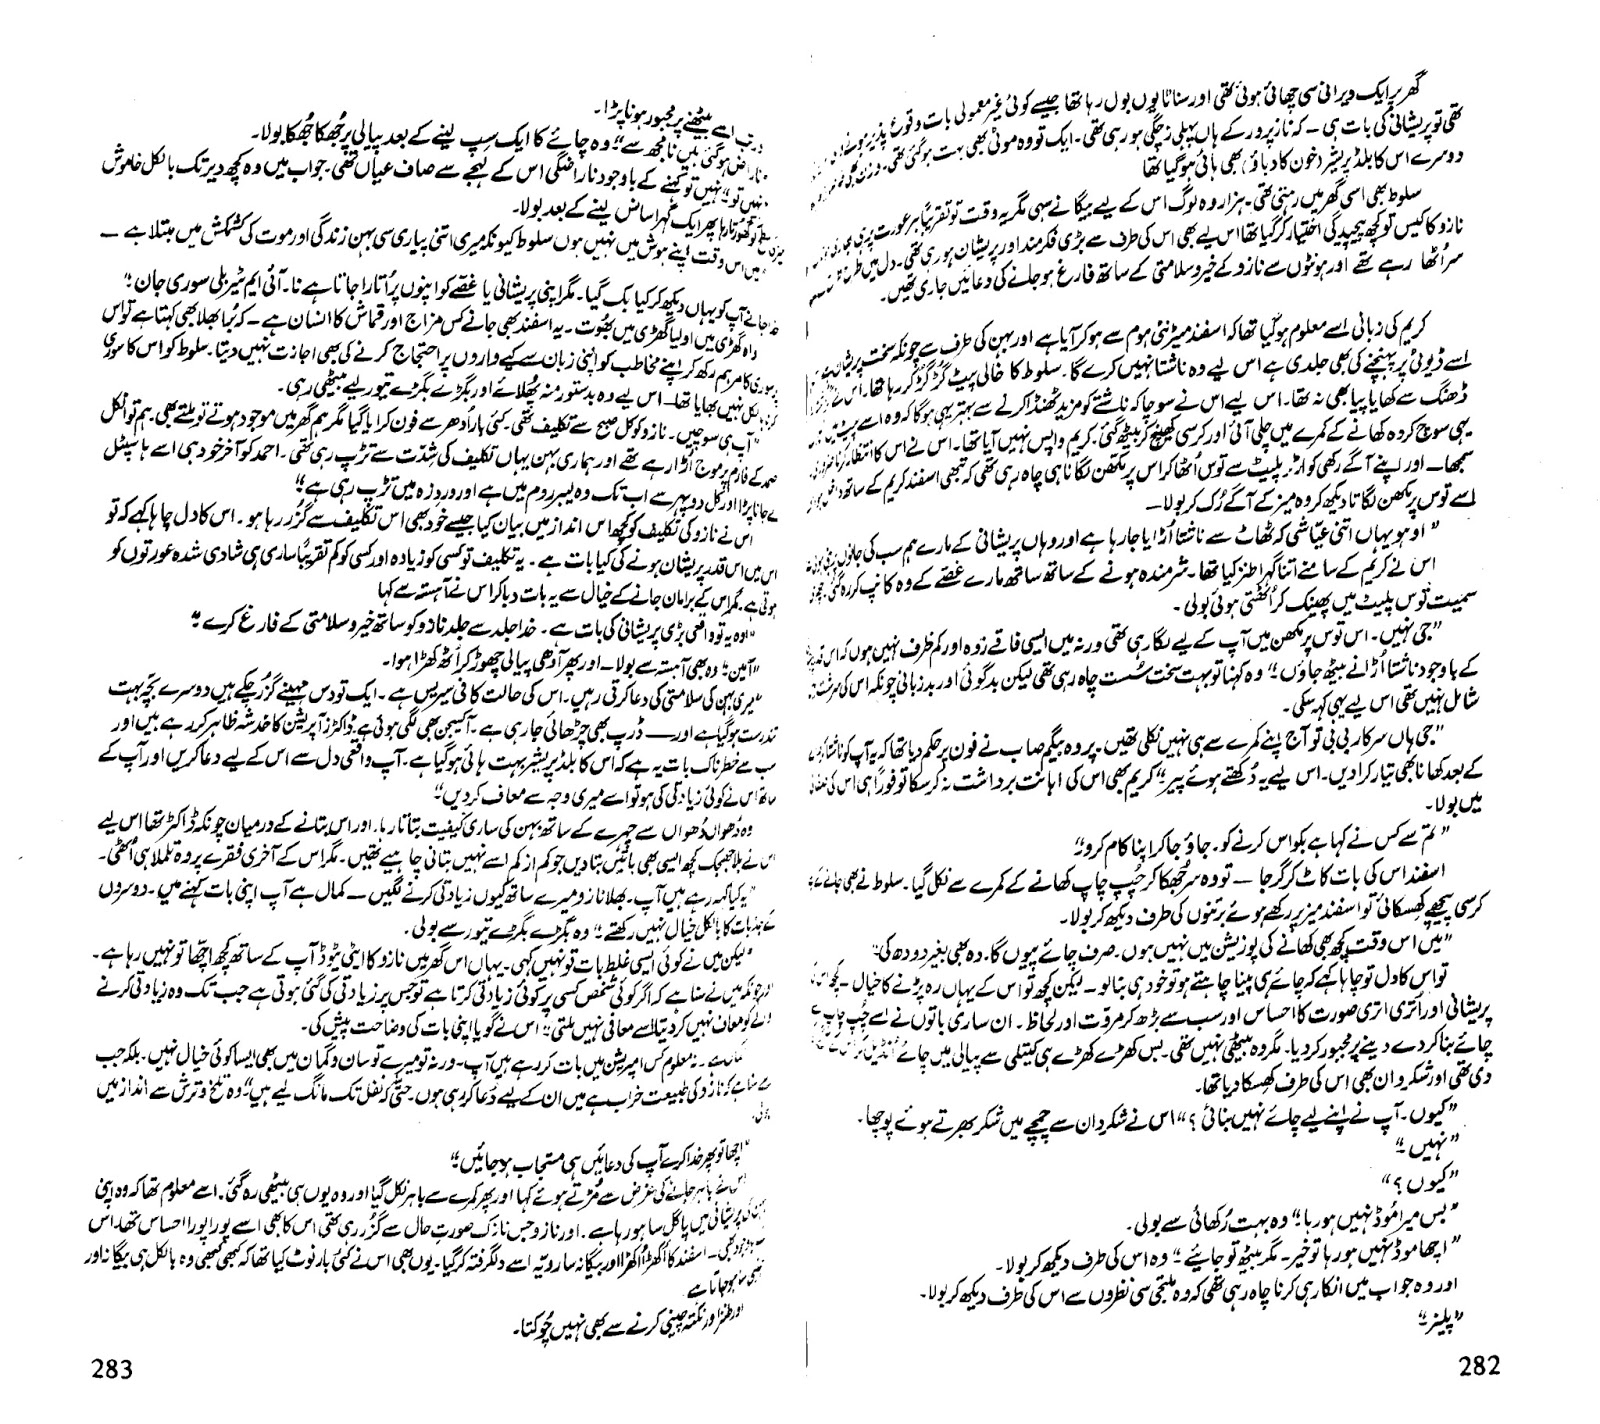 گھر پر ایک ویرانی سی چھائی ہوئی تھی اور سناٹا یوں بول رہا تھا جیسے کوئی غیر معمولی بات وقوع پذیر ہونے
تھی تو پریشانی کی بات ہی — کہ ناز پرور کے ہاں پہلی زچگی ہو رہی تھی۔ ایک تو وہ موٹی بھی بہت ہو گئی تھی۔ وزن بھی
دوسرے اس کا بلڈ پریشر (خون کا دباؤ) بھی ہائی ہو گیا تھا
سلوط بھی اسی گھر میں رہتی تھی۔ ہزار وہ لوگ اس کے لیے بیگانے سہی مگر یہ وقت تو تقریباً ہر عورت پر ہی
نازو کا کیس تو کچھ پیچیدگی اختیار کر گیا تھا اس لیے بھی اس کی طرف سے بڑی فکر مند اور پریشان ہو رہی تھی۔ دل میں طرح
سر اٹھا رہے تھے اور ہونٹوں سے نازو کے خیر و سلامتی کے ساتھ فارغ ہو جانے کی دعائیں جاری تھیں۔
کریم کی زبانی اسے معلوم ہو گیا تھا کہ اسفند میٹرنٹی ہوم سے ہو کر آیا ہے اور بہن کی طرف سے چونکہ سخت پریشان ہے
اسے ڈیوٹی پر پہنچنے کی بھی جلدی ہے اس لیے وہ ناشتا نہیں کرے گا۔ سلوط کا خالی پیٹ گڑ گڑ کر رہا تھا۔ اس نے
ڈھنگ سے کھایا پیا بھی نہ تھا۔ اس لیے اس نے سوچا کہ ناشتے کو مزید ٹھنڈا کرنے سے بہتر یہی ہوگا کہ وہ اسے
یہی سوچ کر وہ کھانے کے کمرے میں چلی آئی اور کرسی کھینچ کر بیٹھ گئی۔ کریم واپس نہیں آیا تھا۔ اس نے اس کا انتظار کرنا
سمجھا — اور اپنے آگے رکھی کوارٹر پلیٹ سے توس اٹھا کر اس پر مکھن لگانا ہی چاہ رہی تھی کہ تبھی اسفند کریم کے ساتھ داخل ہوا
اسے توس پر مکھن لگاتا دیکھ کر وہ میز کے آگے رک کر بولا —
”اوہو یہاں اتنی عیاشی کہ ٹھاٹ سے ناشتا اڑایا جا رہا ہے اور وہاں پریشانی کے مارے ہم سب کی جانوں پر بنی ہوئی ہے
اس نے کریم کے سامنے اتنا گہرا طنز کیا تھا۔ شرمندہ ہونے کے ساتھ ساتھ مارے غصے کے وہ کانپ کر رہ گئی۔
سمیت توس پلیٹ میں پھینک کر اٹھتی ہوئی بولی۔
”جی نہیں۔ اس توس پر مکھن میں آپ کے لیے لگا رہی تھی ورنہ میں ایسی فاقے زدہ اور کم ظرف نہیں ہوں کہ اس قدر
کے باوجود ناشتا اڑانے بیٹھ جاؤں۔“ وہ کہنا تو بہت سخت سست چاہ رہی تھی لیکن بدگوئی اور بدزبانی چونکہ اس کی سرشت
شامل نہیں تھی اس لیے یہی کہہ سکی۔
”جی ہاں سرکار بی بی تو آج اپنے کمرے سے ہی نہیں نکلی تھیں۔ پر وہ بیگم صاب نے فون پر حکم دیا تھا کہ یہ آپ کو ناشتا
کے بعد کھانا بھی تیار کرا دیں۔ اس لیے یہ دُکھتے ہوئے پیر“ کریم بھی اس کی اہانت برداشت نہ کر سکا تو فوراً ہی اس کی
میں بولا۔
”تم سے کس نے کہا ہے بکواس کرنے کو۔ جاؤ جا کر اپنا کام کرو“
اسفند اس کی بات کاٹ کر گرجا — تو وہ سر جھکا کر چپ چاپ کھانے کے کمرے سے نکل گیا۔ سلوط نے بھی جانے
کرسی پیچھے کھسکائی تو اسفند میز پر رکھے ہوئے برتنوں کی طرف دیکھ کر بولا۔
”میں اس وقت کچھ بھی کھانے کی پوزیشن میں نہیں ہوں۔ صرف چائے پیوں گا۔ وہ بھی بغیر دودھ کی“
تو اس کا دل تو چاہا کہے کہ چائے ہی پینا چاہتے ہو تو خود ہی بنا لو — لیکن کچھ تو اس کے یہاں رہ پڑنے کا خیال — کچھ اس
پریشانی اور اتری اتری صورت کا احساس اور سب سے بڑھ کر مروّت اور لحاظ۔ ان ساری باتوں نے اسے چپ چاپ
چائے بنا کر دے دینے پر مجبور کر دیا۔ مگر وہ بیٹھی نہیں تھی۔ بس کھڑے کھڑے ہی کیتلی سے پیالی میں چائے انڈیل کر
دی تھی اور شکر دان بھی اس کی طرف کھسکا دیا تھا۔
”کیوں۔ آپ نے اپنے لیے چائے نہیں بنائی؟“ اس نے شکر دان سے چمچے میں شکر بھرتے ہوئے پوچھا۔
”نہیں“
”کیوں؟“
”بس میرا موڈ نہیں ہو رہا“ وہ بہت رکھائی سے بولی۔
”اچھا موڈ نہیں ہو رہا تو خیر۔ مگر بیٹھ تو جائیے“ وہ اس کی طرف دیکھ کر بولا۔
اور وہ جواب میں انکار ہی کرنا چاہ رہی تھی کہ وہ ملتجی سی نظروں سے اس کی طرف دیکھ کر بولا۔
”پلیز“
282
اسے بیٹھنے پر مجبور ہونا پڑا۔
ناراض ہو گئی ہیں نا مجھ سے“ وہ چائے کا ایک سپ لینے کے بعد پیالی پر جھکا جھکا بولا۔
”نہیں تو“ نہیں تو کہنے کے باوجود ناراضگی اس کے لہجے سے صاف عیاں تھی۔ جواب میں وہ کچھ دیر تک بالکل خاموش
کو گھورتا رہا پھر ایک گہرا سانس لینے کے بعد بولا۔
”میں اس وقت اپنے ہوش میں نہیں ہوں سلوط کیونکہ میری اتنی پیاری سی بہن زندگی اور موت کی کشمکش میں مبتلا ہے —
جانے آپ کو یہاں دیکھ کر کیا بک گیا۔ مگر اپنی پریشانی یا غصے کو اپنوں پر اتارا جاتا ہے نا۔ آئی ایم ٹیریبلی سوری جان“
واہ گھڑی میں اولیا گھڑی میں بھوت۔ یہ اسفند بھی جانے کس مزاج اور قماش کا انسان ہے — کہ برا بھلا بھی کہتا ہے تو اس
سوری کا مرہم رکھ کر اپنے مخاطب کو اپنی زبان سے کیے واروں پر احتجاج کرنے کی بھی اجازت نہیں دیتا۔ سلوط کو اس کا سوری
کرنا بالکل نہیں بھایا تھا — اس لیے وہ بدستور منہ پھلائے اور بگڑے بگڑے تیور لیے بیٹھی رہی۔
”آپ ہی سوچیں۔ نازو کو کل صبح سے تکلیف تھی۔ کئی بار ادھر سے فون کرایا گیا مگر ہم گھر میں موجود ہوتے تو ملتے بھی۔ ہم تو انکل
صمد کے فارم پر موج اڑا رہے تھے اور ہماری بہن یہاں تکلیف کی شدّت سے تڑپ رہی تھی۔ احمد کو آخر خود ہی اسے ہاسپٹل
لے جانا پڑا اور کل دوپہر سے اب تک وہ لیبر روم میں ہے اور درد زہ میں تڑپ رہی ہے“
اس نے نازو کی تکلیف کو کچھ اس انداز میں بیان کیا جیسے خود بھی اس تکلیف سے گزر رہا ہو۔ اس کا دل چاہا کہے کہ تو
اس میں اس قدر پریشان ہونے کی کیا بات ہے۔ یہ تکلیف تو کسی کو زیادہ اور کسی کو کم تقریباً ساری ہی شادی شدہ عورتوں کو
ہوتی ہے۔ مگر اس کے برا مان جانے کے خیال سے یہ بات دبا کر اس نے آہستہ سے کہا
”اوہ یہ تو واقعی بڑی پریشانی کی بات ہے۔ خدا جلد سے جلد نازو کو ساتھ خیر و سلامتی کے فارغ کرے“
”آمین“ وہ بھی آہستہ سے بولا — اور پھر آدھی پیالی چھوڑ کر اٹھ کھڑا ہوا۔
”میری بہن کی سلامتی کی دعا کرتی رہیں۔ اس کی حالت کافی سیریس ہے۔ ایک تو دس مہینے گزر چکے ہیں دوسرے بچّہ بہت
تندرست ہو گیا ہے اور — ڈرپ بھی چڑھائی جا رہی ہے۔ آکسیجن بھی لگی ہوئی ہے۔ ڈاکٹرز آپریشن کا خدشہ ظاہر کر رہے ہیں اور
سب سے خطرناک بات یہ ہے کہ اس کا بلڈ پریشر بہت ہائی ہو گیا ہے۔ آپ واقعی دل سے اس کے لیے دعا کریں اور آپ کے
ساتھ اس نے کوئی زیادتی کی ہو تو اسے میری وجہ سے معاف کر دیں“
وہ دُھواں دُھواں سے چہرے کے ساتھ بہن کی ساری کیفیت بتاتا رہا۔ اور اس بتانے کے درمیان چونکہ ڈاکٹر تھا اس لیے
اس نے بلا جھجک کچھ ایسی بھی باتیں بتا دیں جو کم از کم اسے نہیں بتانی چاہیے تھیں۔ مگر اس کے آخری فقرے پر وہ تلملا ہی اٹھی۔
”یہ کیا کہہ رہے ہیں آپ۔ بھلا نازو میرے ساتھ کیوں زیادتی کرنے لگیں — کمال ہے آپ اپنی بات کہنے میں۔ دوسروں
کے جذبات کا بالکل خیال نہیں رکھتے“ وہ بگڑے بگڑے تیور سے بولی۔
”لیکن میں نے کوئی ایسی غلط بات تو نہیں کہی۔ یہاں اس گھر میں نازو کا ایٹی ٹیوڈ آپ کے ساتھ کچھ اچھّا تو نہیں رہا ہے۔
اور چونکہ میں نے سنا ہے کہ اگر کوئی شخص کسی پر کوئی زیادتی کرتا ہے تو جس پر زیادتی کی گئی ہوتی ہے جب تک وہ زیادتی کرنے
والے کو معاف نہیں کر دیتا اسے معافی نہیں ملتی“ اس نے گویا اپنی بات کی وضاحت پیش کی۔
معلوم کس امپریشن میں بات کر رہے ہیں آپ۔ ورنہ تو میرے تو سان و گمان میں بھی ایسا کوئی خیال نہیں۔ بلکہ جب
سے سنا ہے کہ نازو کی طبیعت خراب ہے میں ان کے لیے دعا کر رہی ہوں۔ حتّیٰ کہ نفل تک مانگ لیے ہیں“ وہ تلخ و ترش سے انداز میں
بولی۔
”اچھا تو پھر خدا کرے آپ کی دعائیں ہی مستجاب ہو جائیں“
اس نے باہر جانے کی غرض سے مڑتے ہوئے کہا اور پھر کمرے سے باہر نکل گیا اور وہ یوں ہی بیٹھی رہ گئی۔ اسے معلوم تھا کہ وہ اپنی
بہن کی پریشانی میں پاگل سا ہو رہا ہے۔ اور نازو جس نازک صورتِ حال سے گزر رہی تھی اس کا بھی اسے پورا پورا احساس تھا۔ اس
بھی — اسفند کا اکھڑا اکھڑا اور بیگانہ سا رویّہ اسے دلگرفتہ کر گیا۔ یوں بھی اس نے کئی بار نوٹ کیا تھا کہ کبھی کبھی وہ بالکل ہی بیگانہ اور
سا ہو جاتا ہے
اور طنز اور نکتہ چینی کرنے سے بھی نہیں چُوکتا۔
283